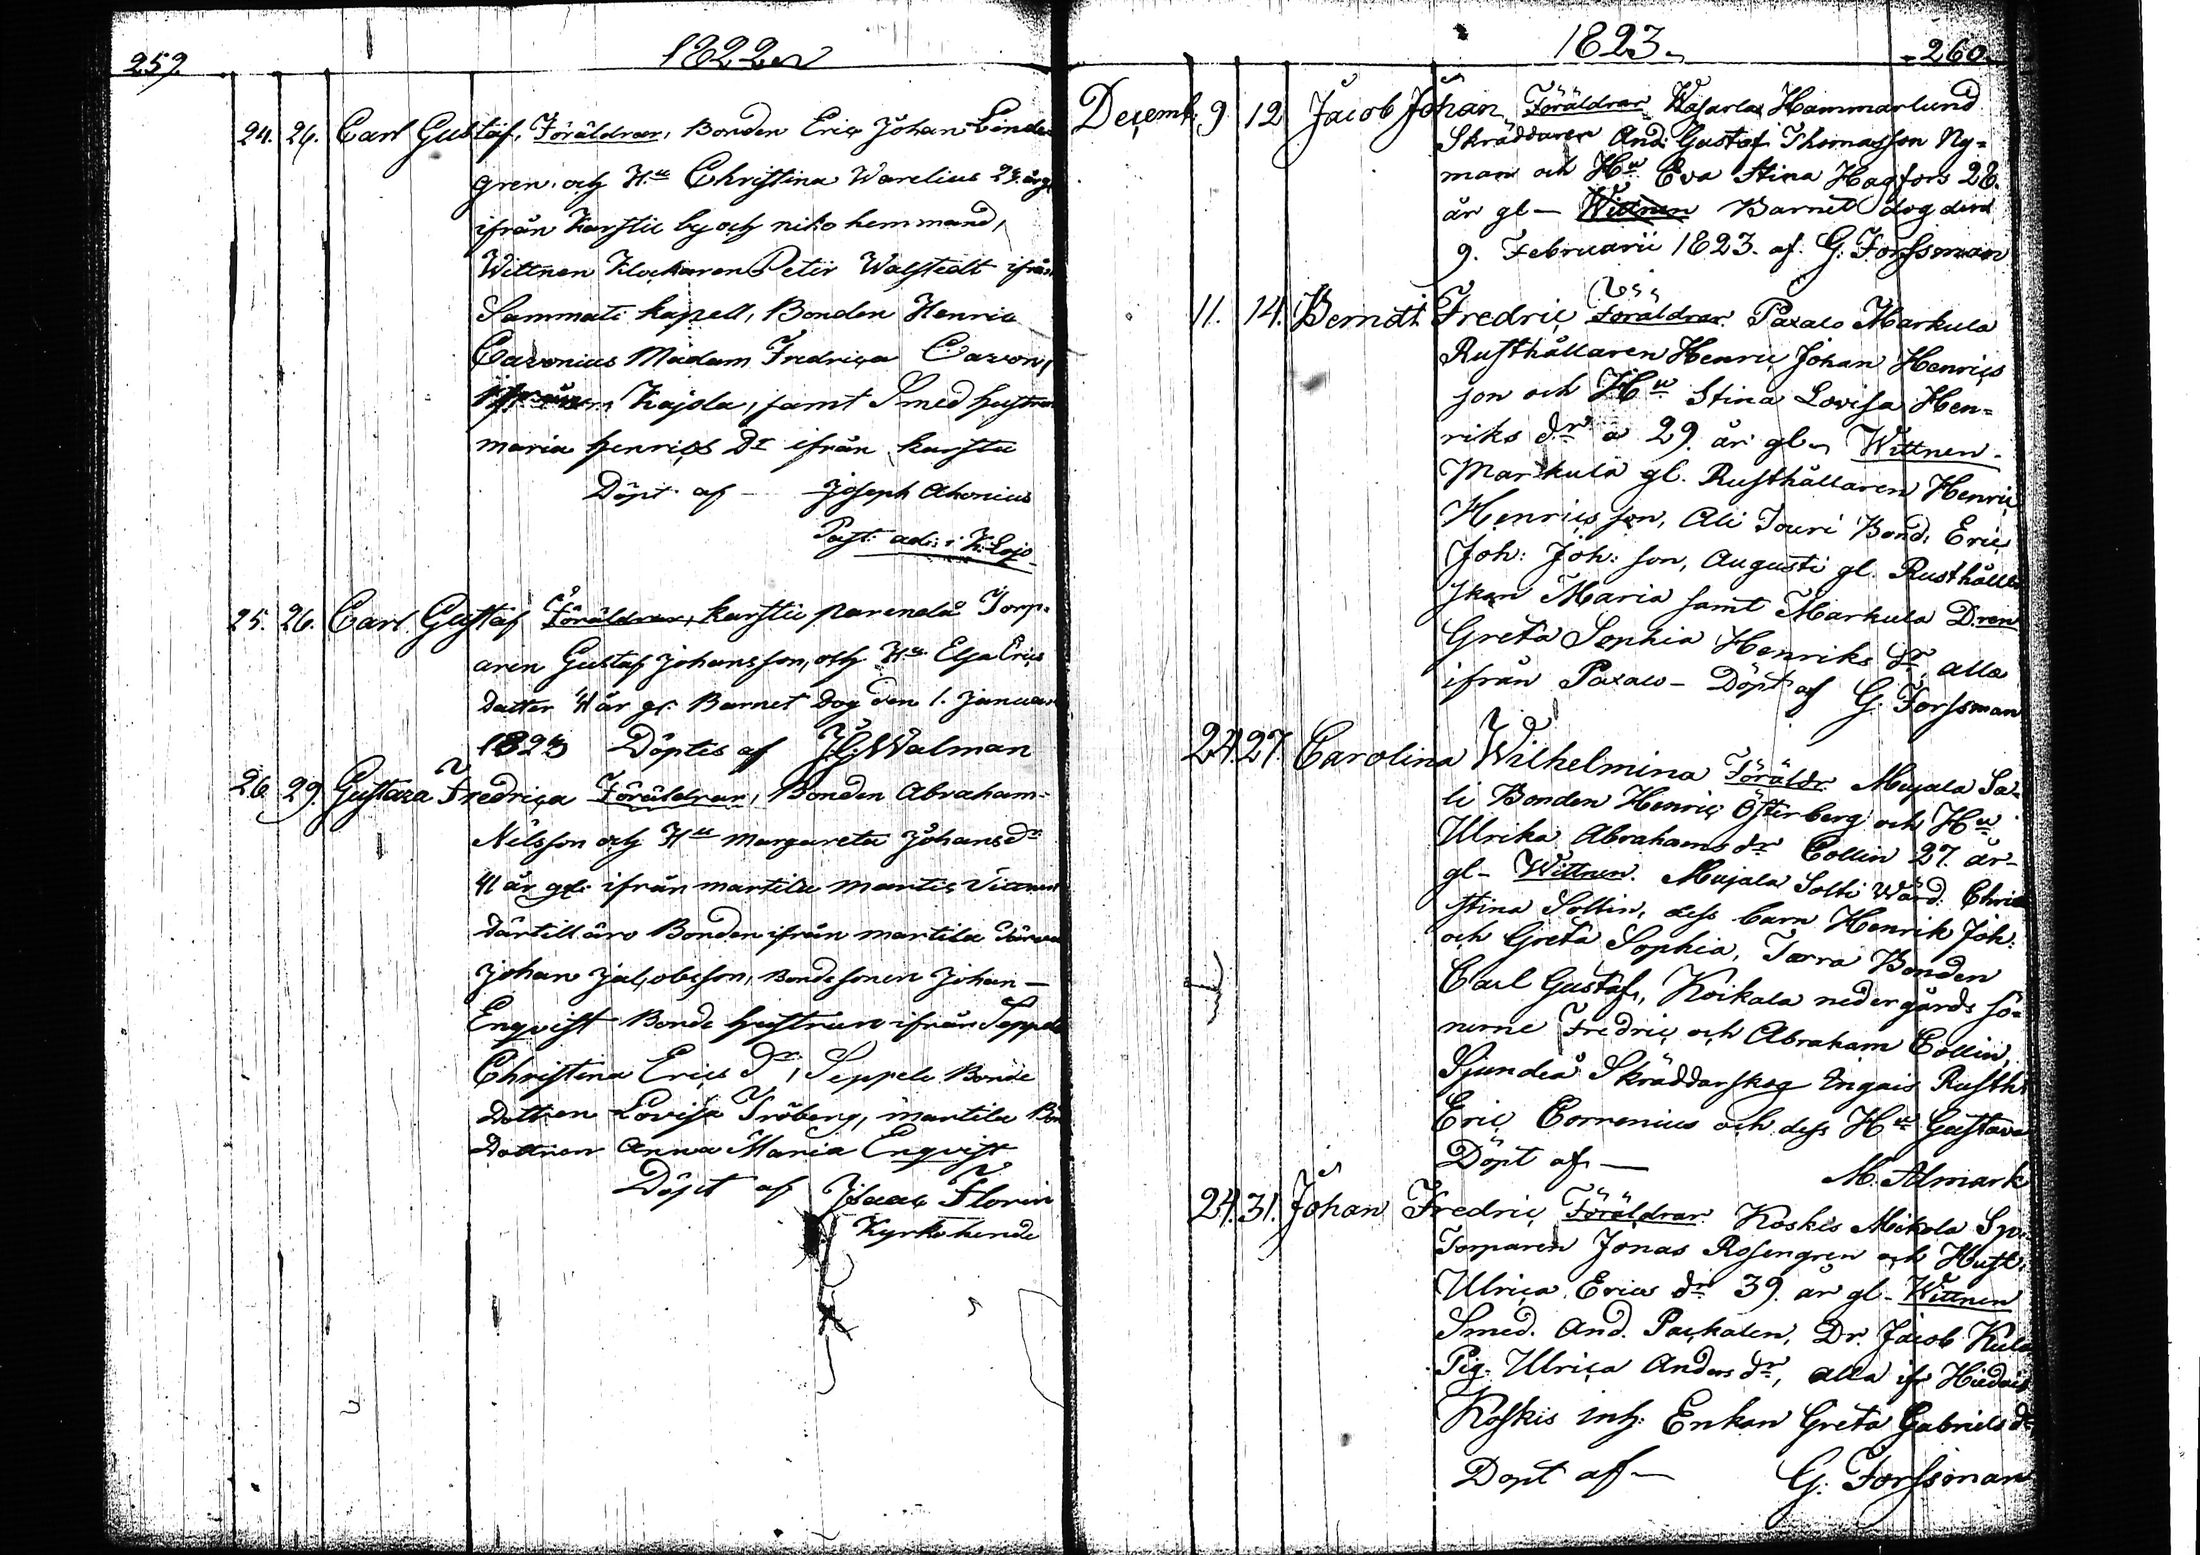 259.
1822
24. 26. Carl Gustaf, Föräldrar, Bonden Eric Johan Linde
gren. och H:u Christina Warelius 29. år gl
ifrån Karstu by och niko hemmand,
Wittnen Klockaren Peter Walstedt ifrån
Sammati kapell, Bonden Henric
Cavonius Madam Fredrica Cavon,
ifrån Kajola, samt Smed hustrun
maria henrics Dr ifrån karstu
Döpt af Joseph Ahonius
Past: adi: i K: Lojo
25. 26. Carl Gustaf Föräldrar, karstu Torp-
aren Gustaf Johansson, och H:u Elsa Erics
datter 41 år gl: Barnet Dog den 1. Januar
1823 Döptes af Walman
26 29. Gustava Fredrica Föräldrar, Bonden Abraham-
Nilsson och H:u margareta Johans dr
41 år gl: ifrån martila
därtill äro Bonden ifrån martila
Johan Jacobsson, Bondesonen Johan —
Enqvist Bonde hustrun ifrån Seppele
Christina Erics Dr, Seppele Bonde
dottren Lovisa Tröberg, martila Bon
dottren Anna Maria Enqvist
Döpt af Isaac Florin
Kyrkoherde
1823.
260.
Decemb: 9 12 Jacob Johan, Föräldrar Hammarlund
Skräddaren And: Gustaf Thomasson Ny-
man och H:u Eva Stina Hagfors 28.
år gl — Wittnen Barnet dog den
9. Februarii 1823. af. G. Forssman
11. 14. Berndt Fredric Föräldrar. Paxalo Markula
Rusthållaren Henric Johan Henrics
son och H:u Stina Lovisa Hen-
riks dr a 29. år gl — Wittnen.
Markula gl. Rusthållaren Henric
Henrics son, Ali Jouri Bond. Eric
Joh: Joh: son, Augusti gl. Rusthålla
skan Maria samt Markula D:ren
Greta Sophia Henriks dr, alla
ifrån Paxalo — Döpt af G. Forssman
24. 27. Carolina Wilhelmina Föräldr. Maxala Sa-
li Bonden Henric Österberg och H:u
Ulrika Abrahams dr Collin 27. år
gl — Wittnen. Maxala Solti Wärd. Chri
stina Soltin, dess barn Henrik Joh:
och Greta Sophia, Tarra Bonden
Carl Gustaf, Koikala nedergårds sö-
nerne Fredric och Abraham Collin,
Sjundeå Skräddarskog Engais Rusth:
Eric Correnius och dess H:u Gustava
Döpt af — M. Almark
24. 31. Johan Fredric Föräldrar. Koskis Mikola Sp:
Torparen Jonas Rosengren och Hust.
Ulrica Erics dr 39. år gl — Wittnen
Smed. And. Packalen, Dr. Jacob
Pig. Ulrica Anders dr, alla ifr
Koskis inh: Enkan Greta Gabriels dr
Döpt af — G. Forssman